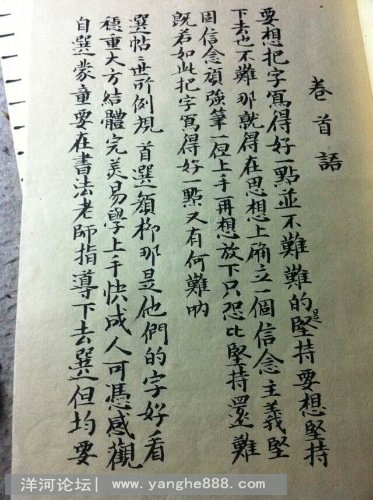 卷首語
要想把字寫得好一點並不難難的是堅持要想堅持
下去也不難那就得在思想上确立一個信念主義堅
固信念頑強筆一但上手再想放下只恐比堅持還難
既若如此把字寫得好一點又有何難吶
選帖世所例規首選顏柳那是他們的字好看
穩重大方結體完美易學上手快成人可憑感觀
自選蒙童要在書法老師指導下去選但均要
洋河论坛| www.yanghe888.com